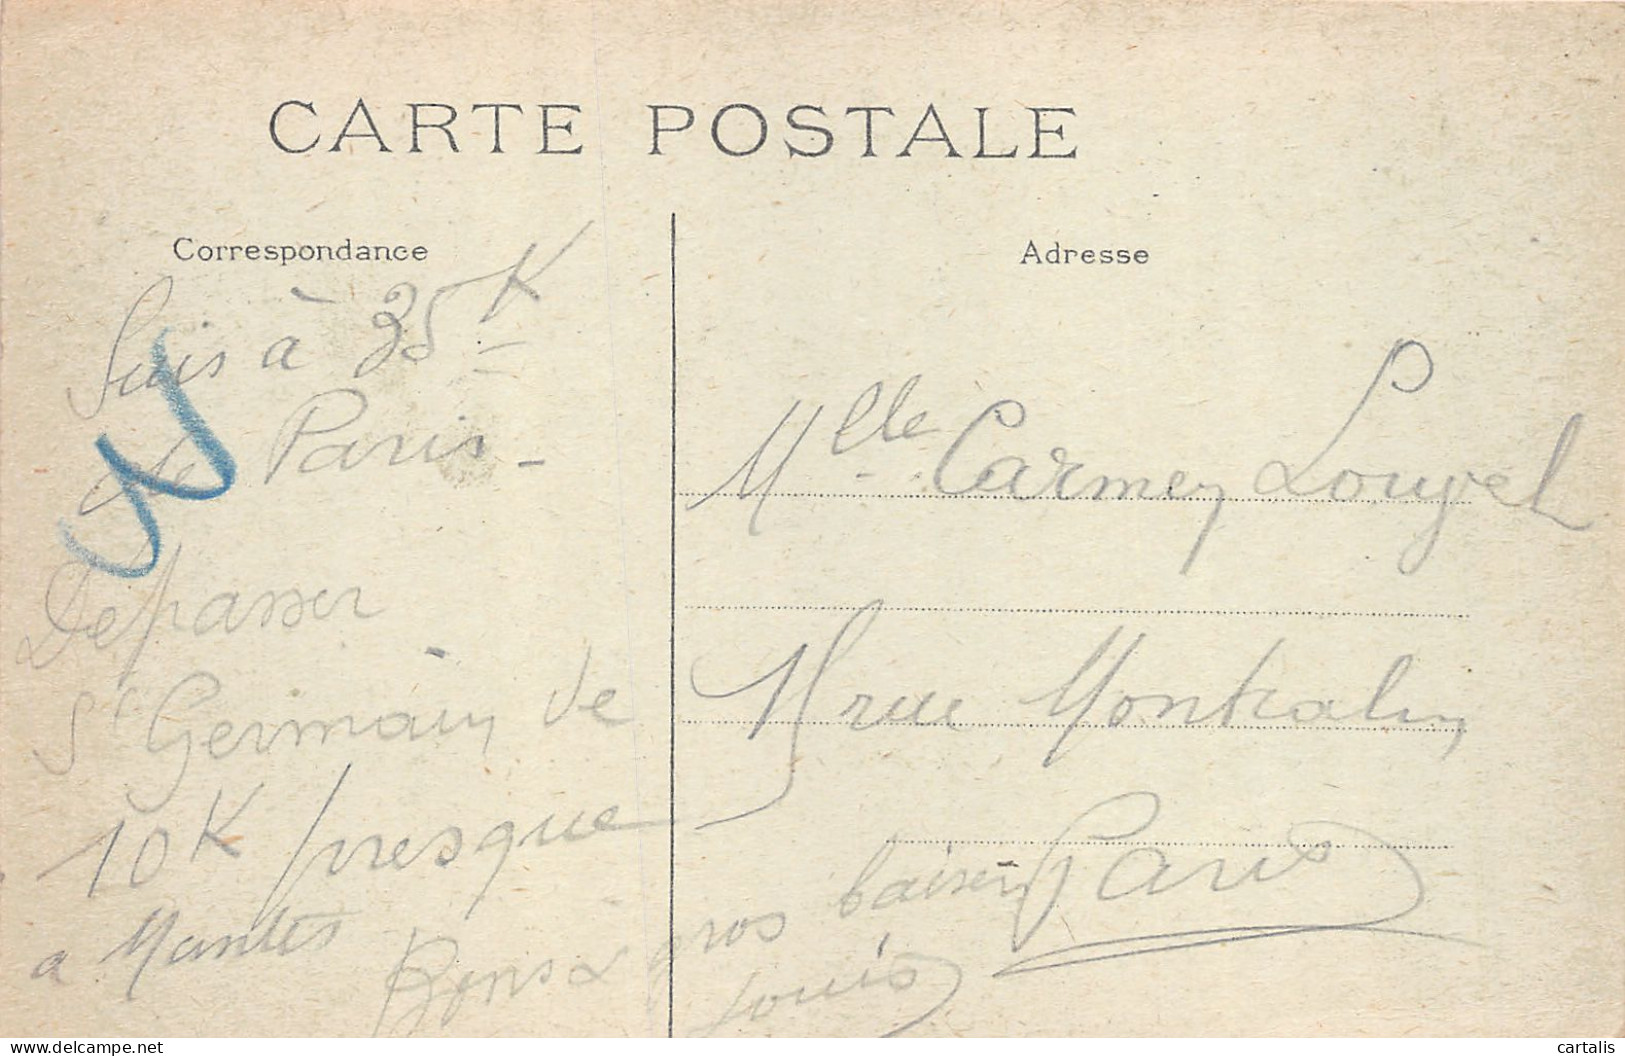 CARTE POSTALE
Correspondance
Suis à 35 K
de Paris -
Dépasser
St Germain de
10 K presque
a Mantes
Bons & gros baisers
Louis
N
Adresse
Mlle Carmen
rue
Paris
delcampe.net
cartalis